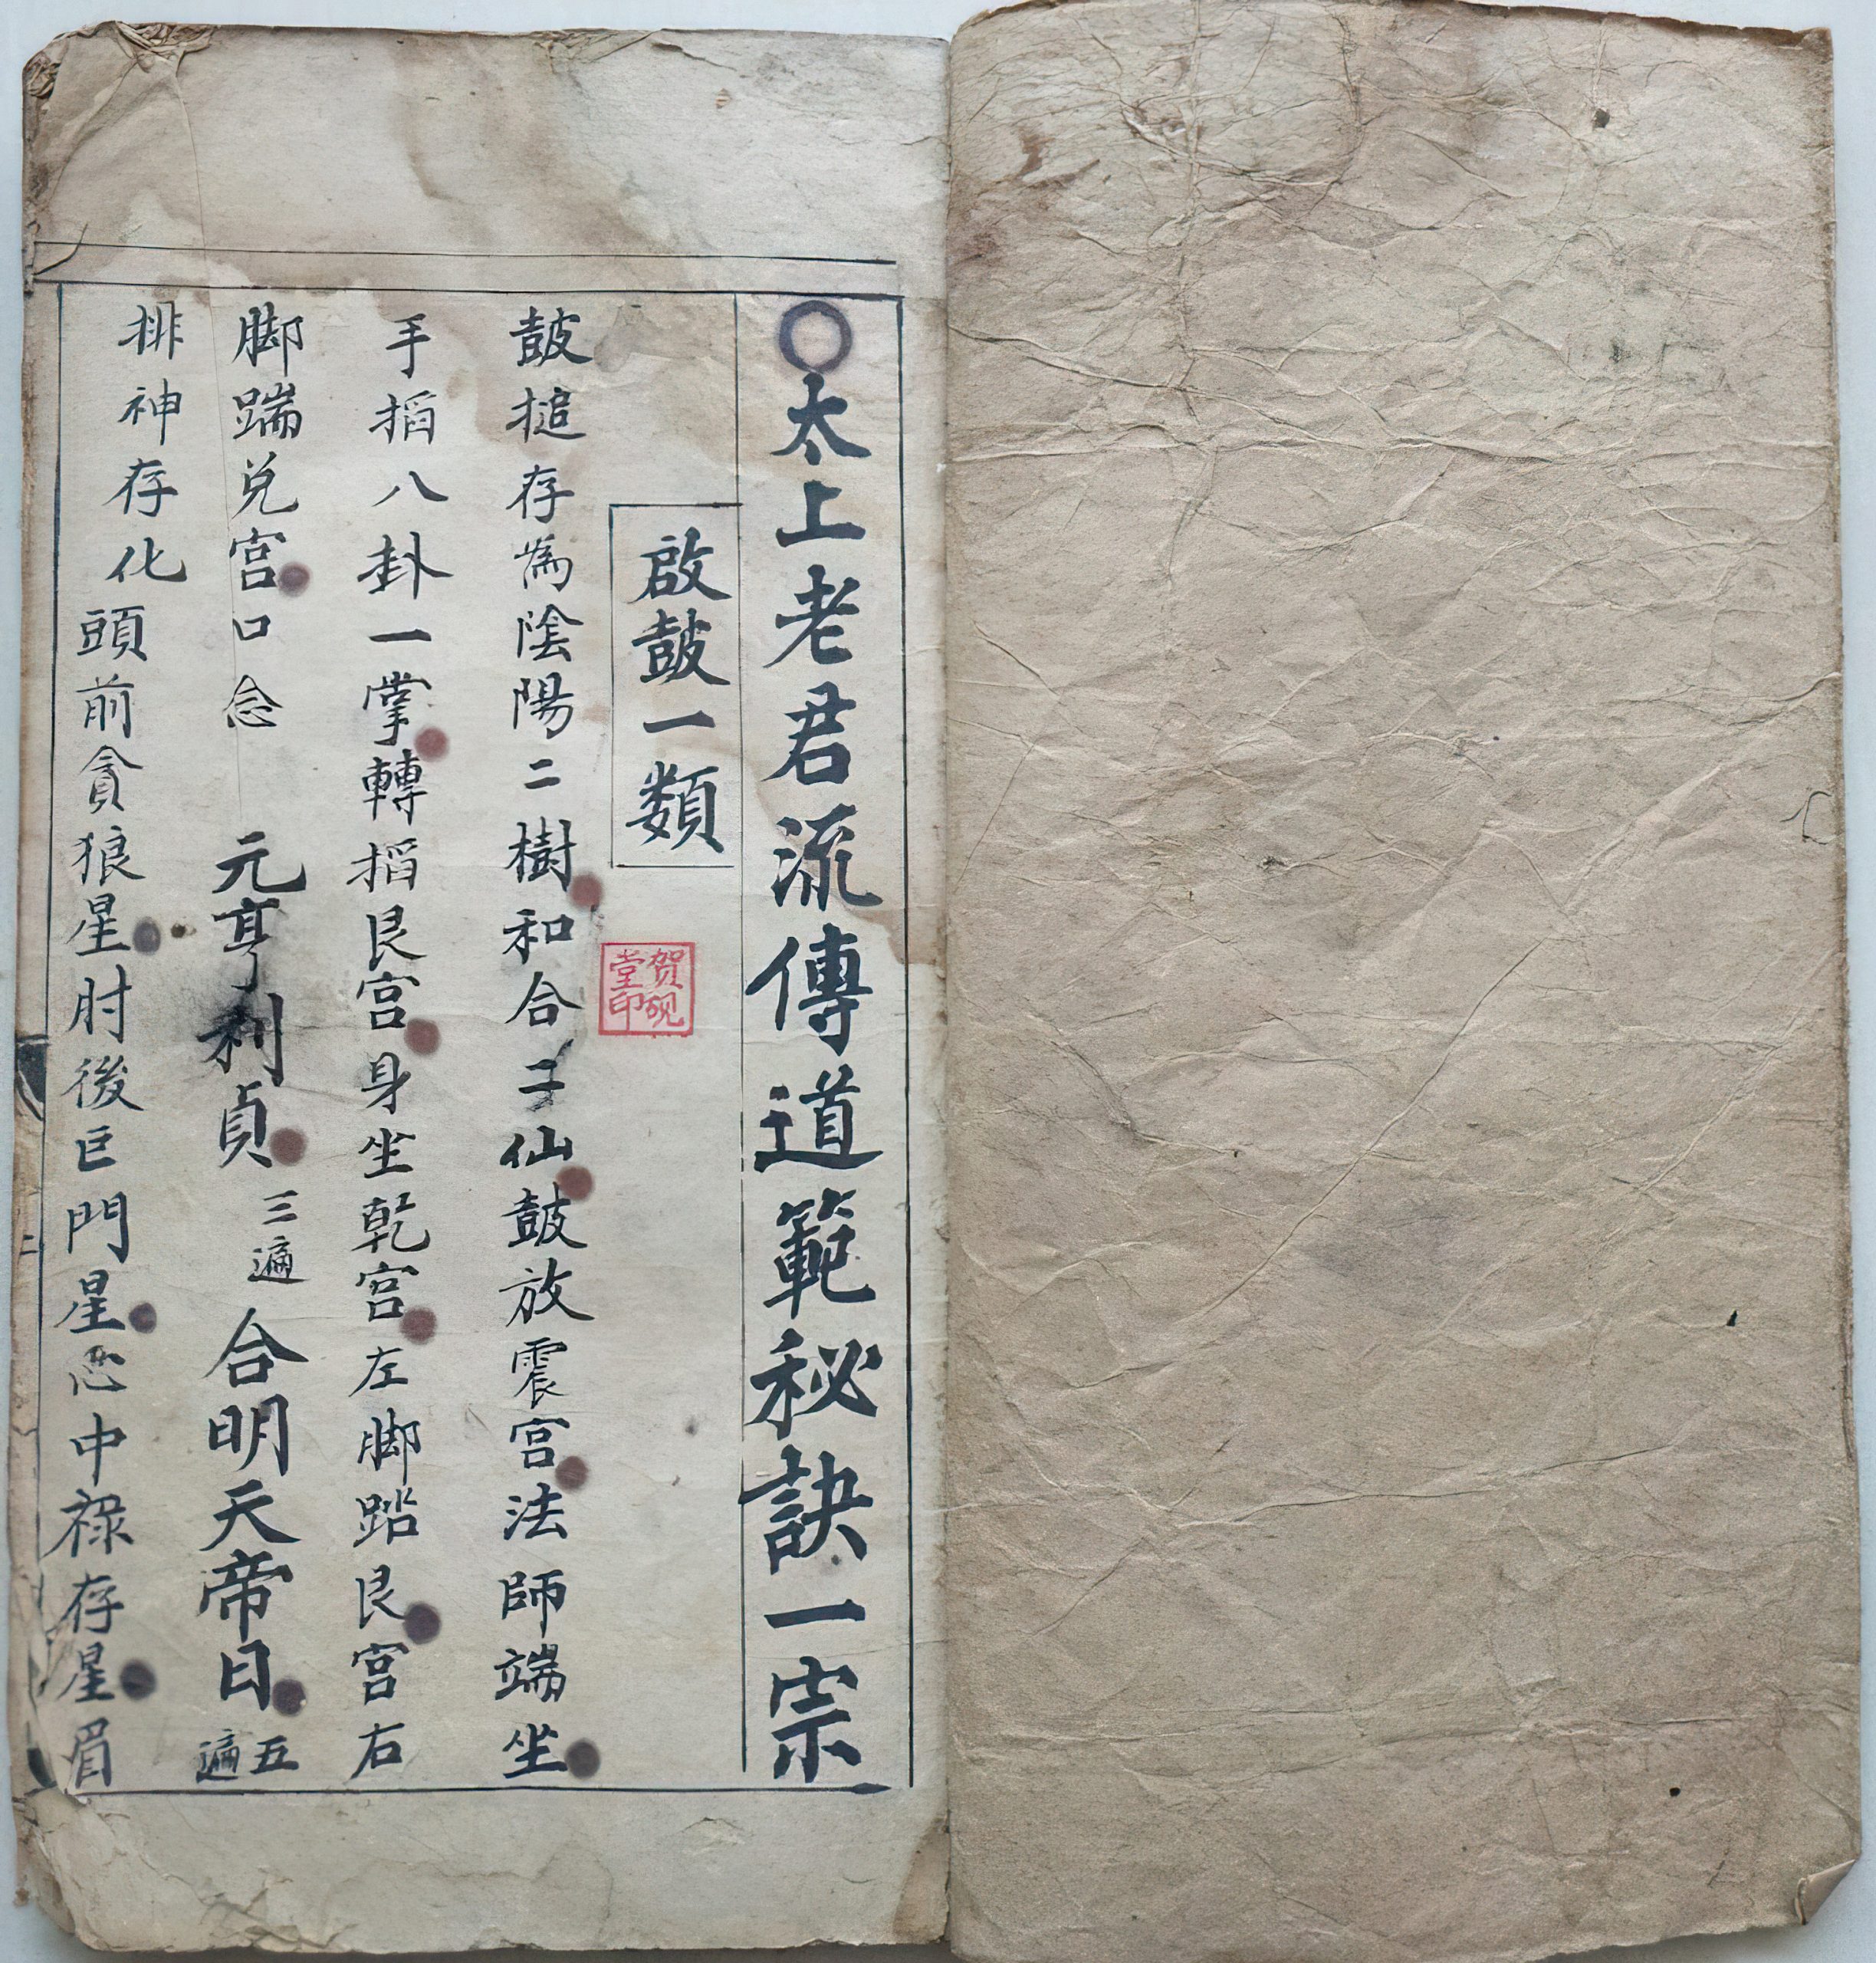 太上老君流傳道範秘訣一宗
啟鼓一類
賀硯堂印
鼓搥存為陰陽二樹和合二仙鼓放震宮法師端坐
手掐八卦一掌轉掐艮宮身坐乾宮左脚踏艮宮右
脚踹兌宮口念 元亨利貞 三遍 合明天帝日 五遍
排神存化頭前貪狼星肘後巨門星心中祿存星眉
二